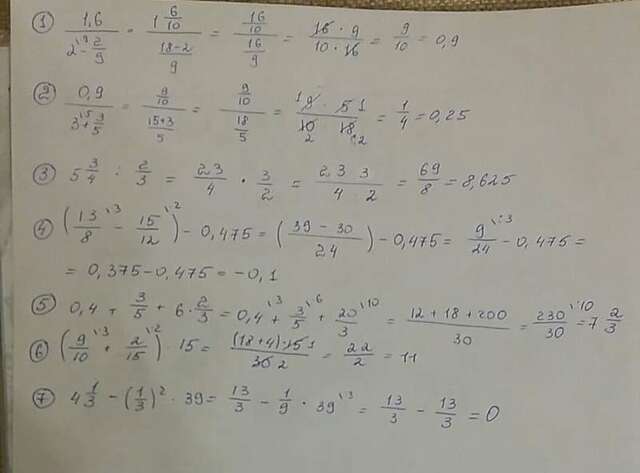 ① 1,6 / (2\9 - 2/9) = 1 6/10 / ((18-2)/9) = (16/10) / (16/9) = (16 · 9) / (10 · 16) = 9/10 = 0,9
② 0,9 / (3\5 + 3/5) = (9/10) / ((15+3)/5) = (9/10) / (18/5) = (1 9 · 5 1) / (2 10 · 18 2) = 1/4 = 0,25
③ 5 3/4 : 2/3 = 23/4 · 3/2 = (23 3) / (4 2) = 69/8 = 8,625
④ (13/8\3 - 15/12\2) - 0,475 = ((39 - 30)/24) - 0,475 = 9/24\:3 - 0,475 =
= 0,375 - 0,475 = -0,1
⑤ 0,4 + 3/5 + 6 · 2/3 = 0,4\3 + 3/5\6 + 20/3\10 = (12 + 18 + 200)/30 = 230/30\:10 = 7 2/3
⑥ (9/10\3 + 2/15\2) · 15 = ((18+4) · 15 1)/(30 2) = 22/2 = 11
⑦ 4 1/3 - (1/3)² · 39 = 13/3 - 1/9 · 39\:3 = 13/3 - 13/3 = 0